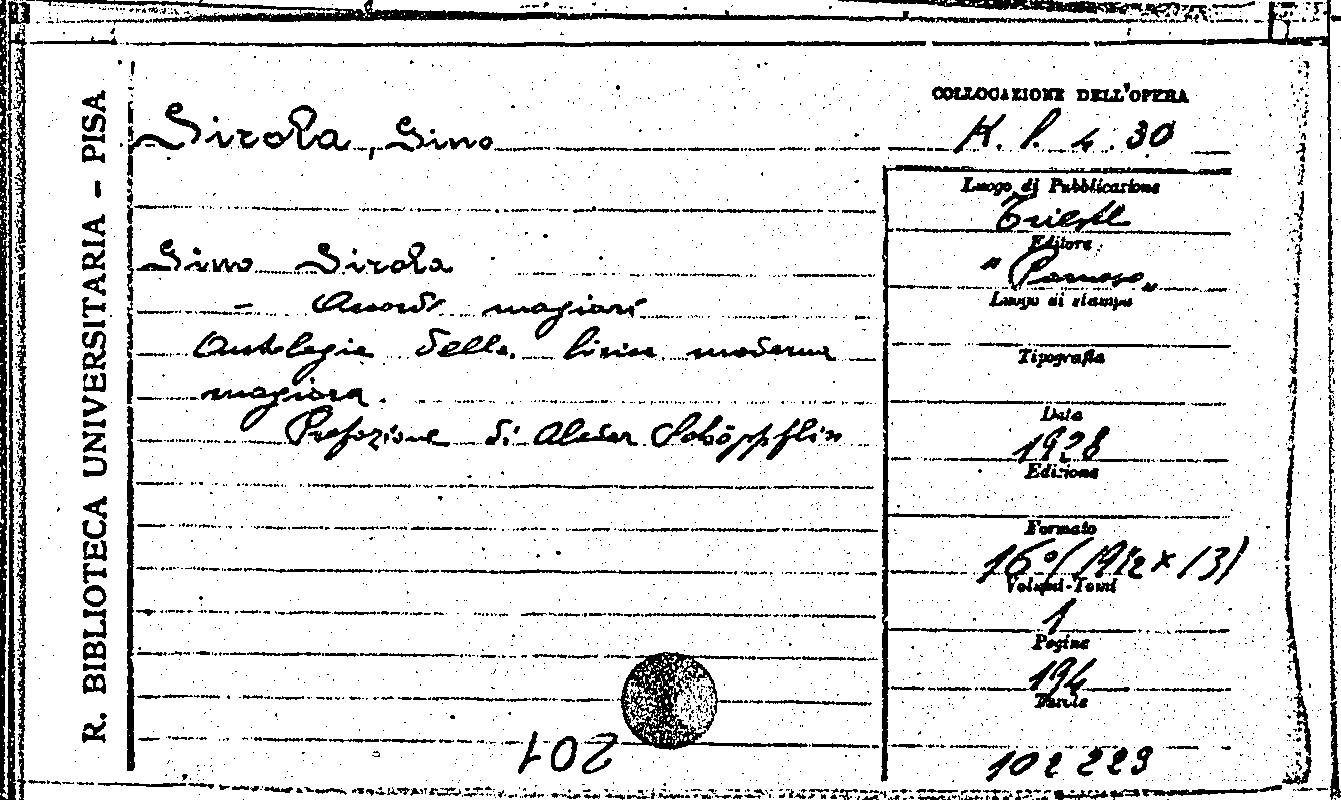 R. BIBLIOTECA UNIVERSITARIA - PISA
Sirola, Gino
Gino Sirola
- Accordi magiari
Antologia della lirica moderna
magiara.
Prefazione di Aladar Schöpfflin
201
COLLOCAZIONE DELL'OPERA
K. l. 4. 30
Luogo di Pubblicazione
Trieste
Editore
"Parnaso"
Luogo di stampa
Tipografia
Data
1928
Edizione
Formato
16° (19 1/2 x 13)
Volumi-Tomi
1
Pagine
194
Tavole
102 223